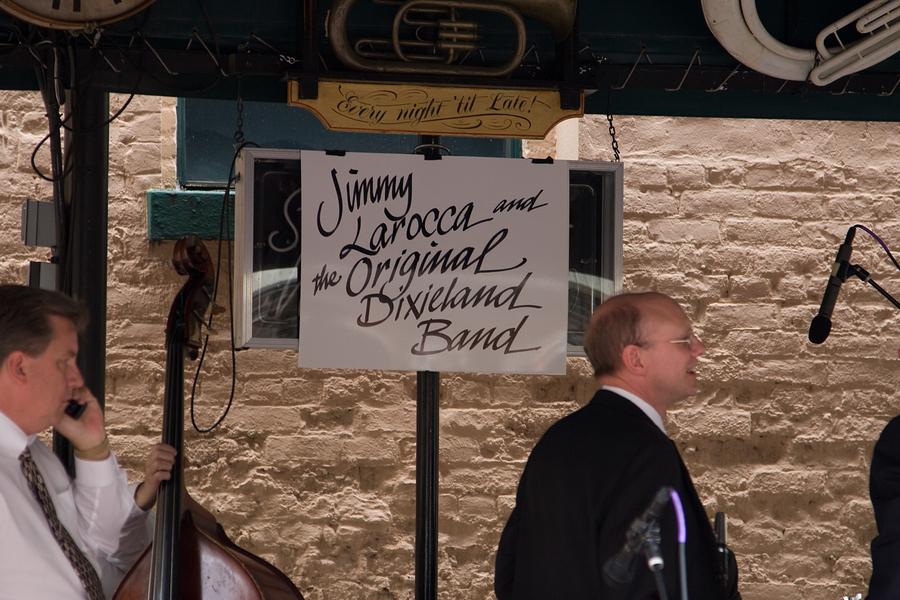 Every night 'til Late!
Jimmy
Larocca and
the Original
Dixieland
Band